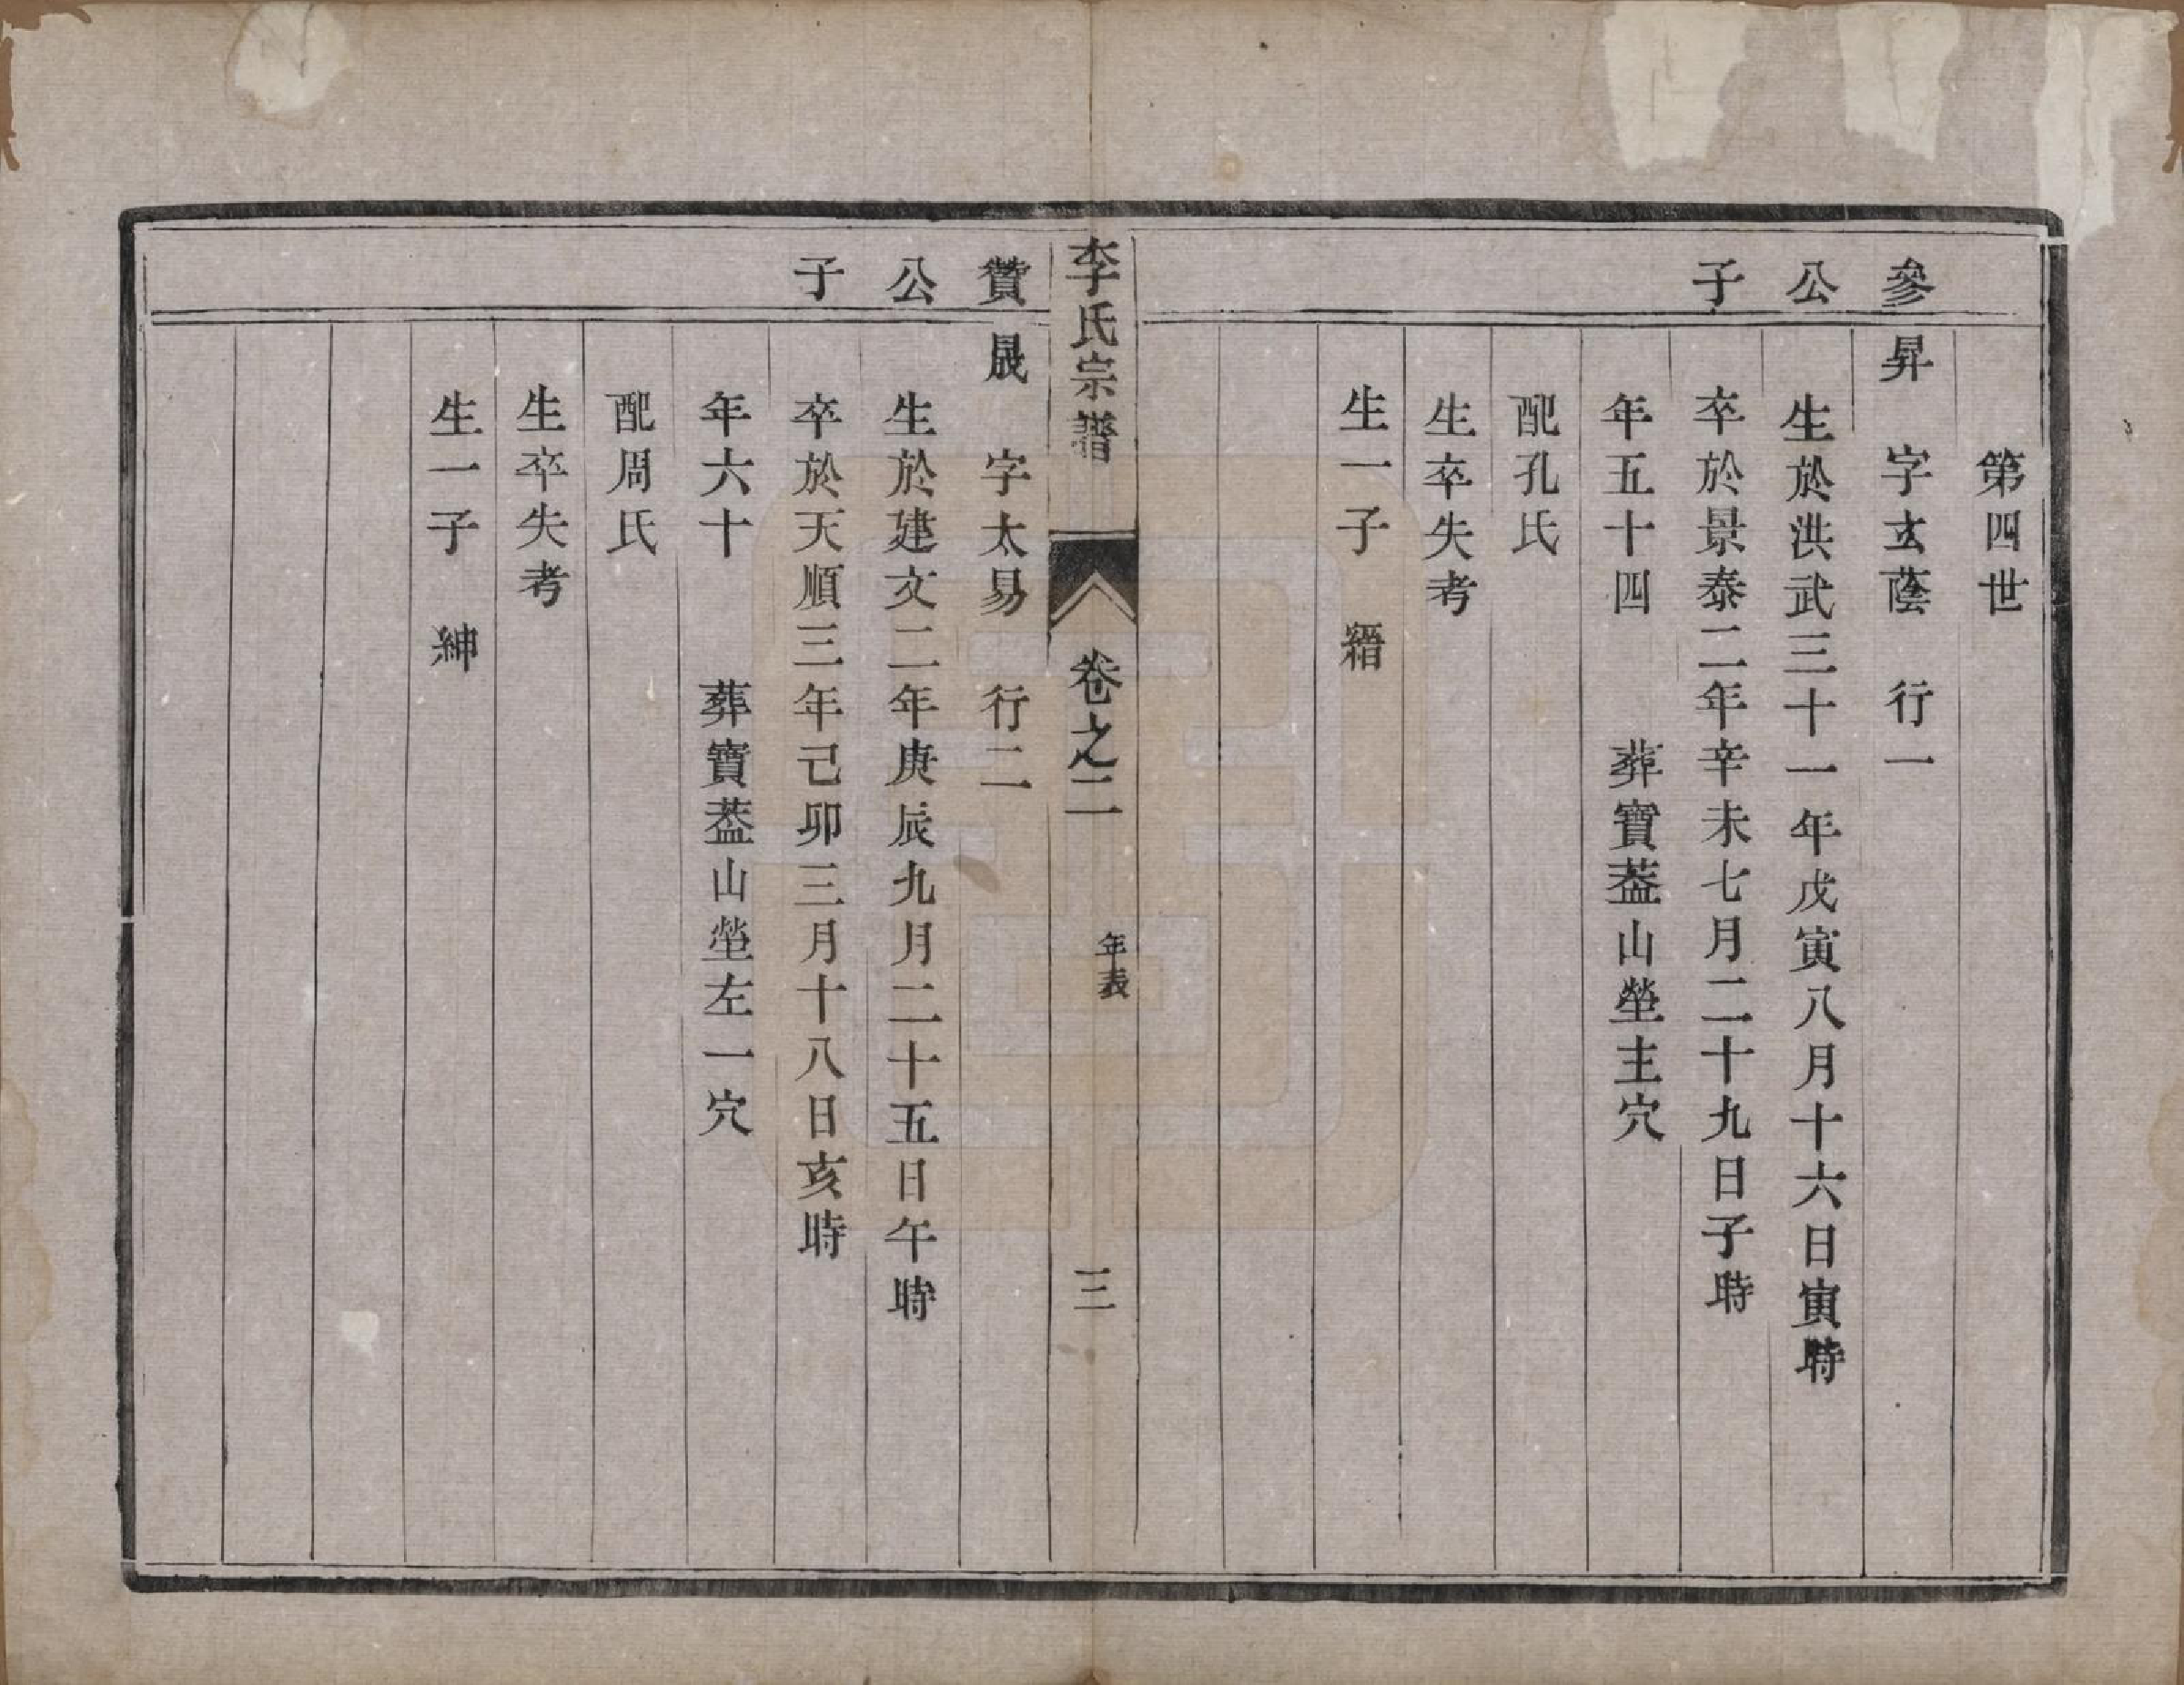 第四世
參 昇 字玄蔭 行一
公 生於洪武三十一年戊寅八月十六日寅時
子 卒於景泰二年辛未七月二十九日子時
年五十四 葬寶葢山塋主穴
配孔氏
生卒失考
生一子 縉
李氏宗譜 卷之二 年表 三
贊 晟 字太易 行二
公 生於建文二年庚辰九月二十五日午時
子 卒於天順三年己卯三月十八日亥時
年六十 葬寶葢山塋左一穴
配周氏
生卒失考
生一子 紳